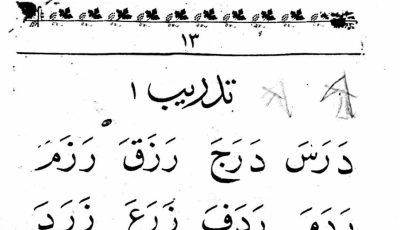 ١٣
تدريب ١
دَرَسَ دَرَجَ رَزَقَ رَزَمَ
رَدَمَ رَدَفَ زَرَعَ زَرَدَ